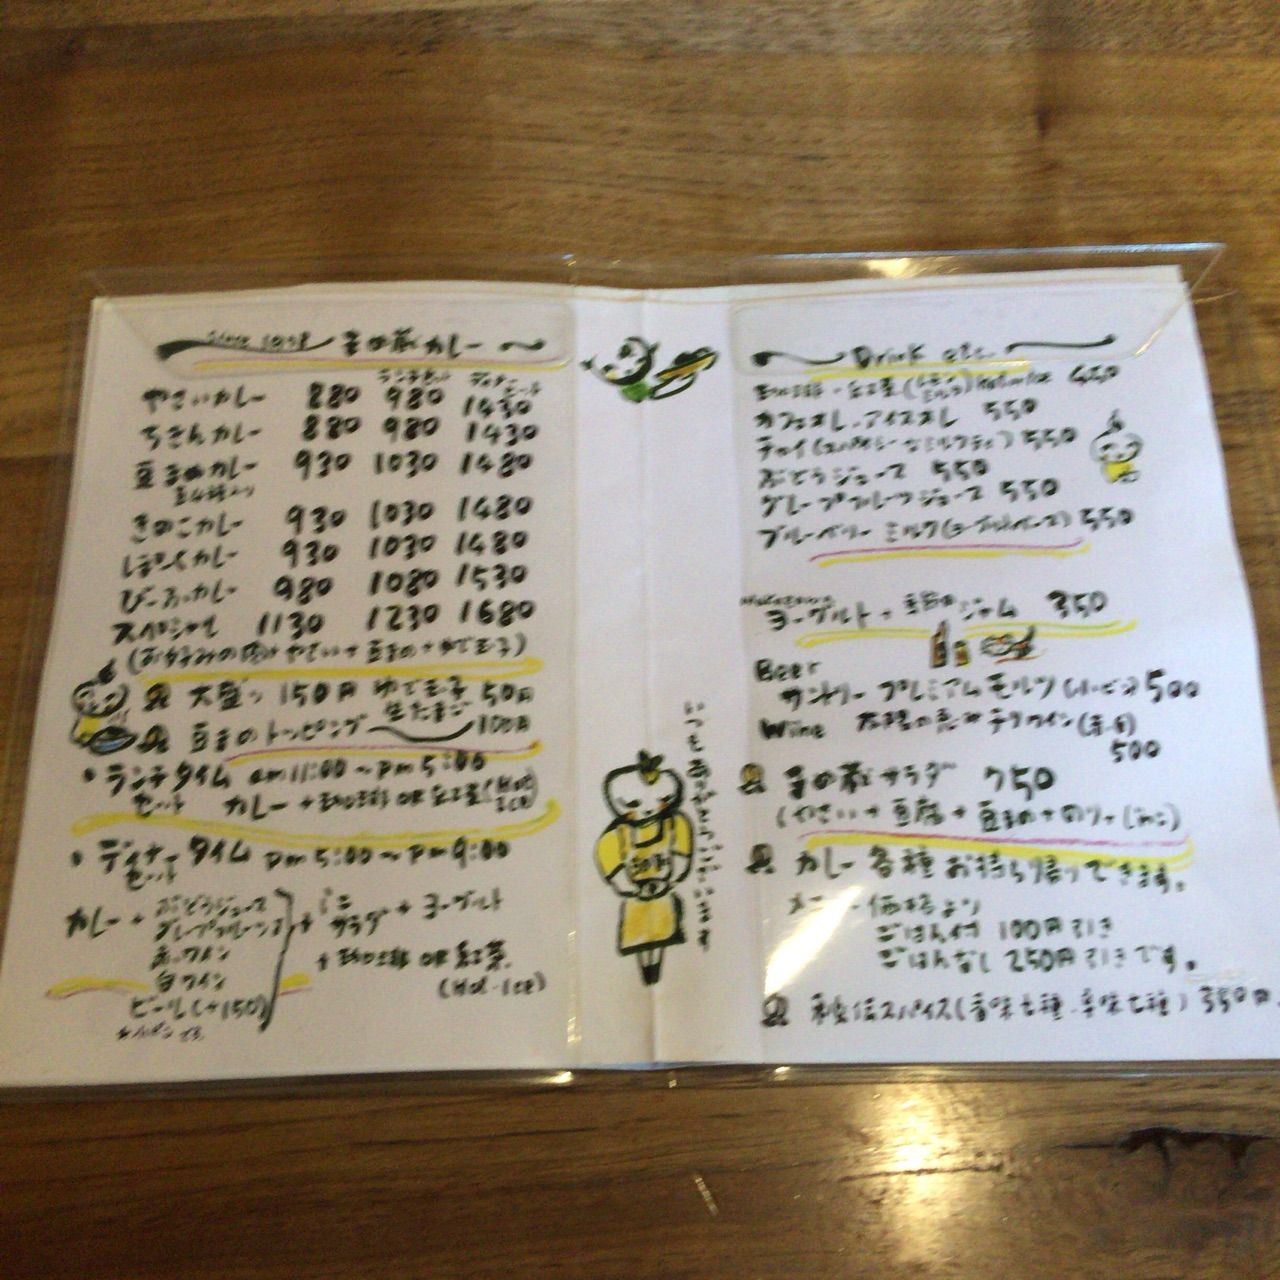 Since 1978 まめ蔵カレー
ランチセット ディナーセット
やさいカレー 880 980 1430
ちきんカレー 880 980 1430
豆まめカレー 930 1030 1480
きのこカレー 930 1030 1480
ぽーくカレー 930 1030 1480
びーふカレー 980 1080 1530
スペシャル 1130 1230 1680
(お好みの肉+やさい+豆まめ+ゆで玉子)
大盛り 150円 ゆで玉子 50円
生たまご
豆まめトッピング 100円
・ランチタイム am11:00~pm5:00
セット カレー+珈琲 or 紅茶(Hot Ice)
・ディナータイム pm5:00~pm9:00
セット
カレー+ ぶどうジュース + ミニサラダ + ヨーグルト
グレープフルーツJ
赤ワイン + 珈琲 or 紅茶
白ワイン (Hot・Ice)
ビール(+150)
Drink etc.
珈琲・紅茶(レモン ミルク) Hot or Ice 450
カフェオレ・アイスオレ 550
チャイ(スパイシーなミルクティ) 550
ぶどうジュース 550
グレープフルーツジュース 550
ブルーベリーミルク(ヨーグルトベース) 550
ヨーグルト+季節のジャム 350
Beer
サントリー プレミアムモルツ(小ビン) 500
Wine 太陽の恵みチリワイン(赤・白)
500
まめ蔵サラダ 750
(やさい+豆腐+豆まめ+のり+じゃこ)
カレー各種お持ち帰りできます。
メニュー価格より
ごはん付 100円引き
ごはんなし 250円引きです。
秘伝スパイス(香味七種・辛味七種) 350円